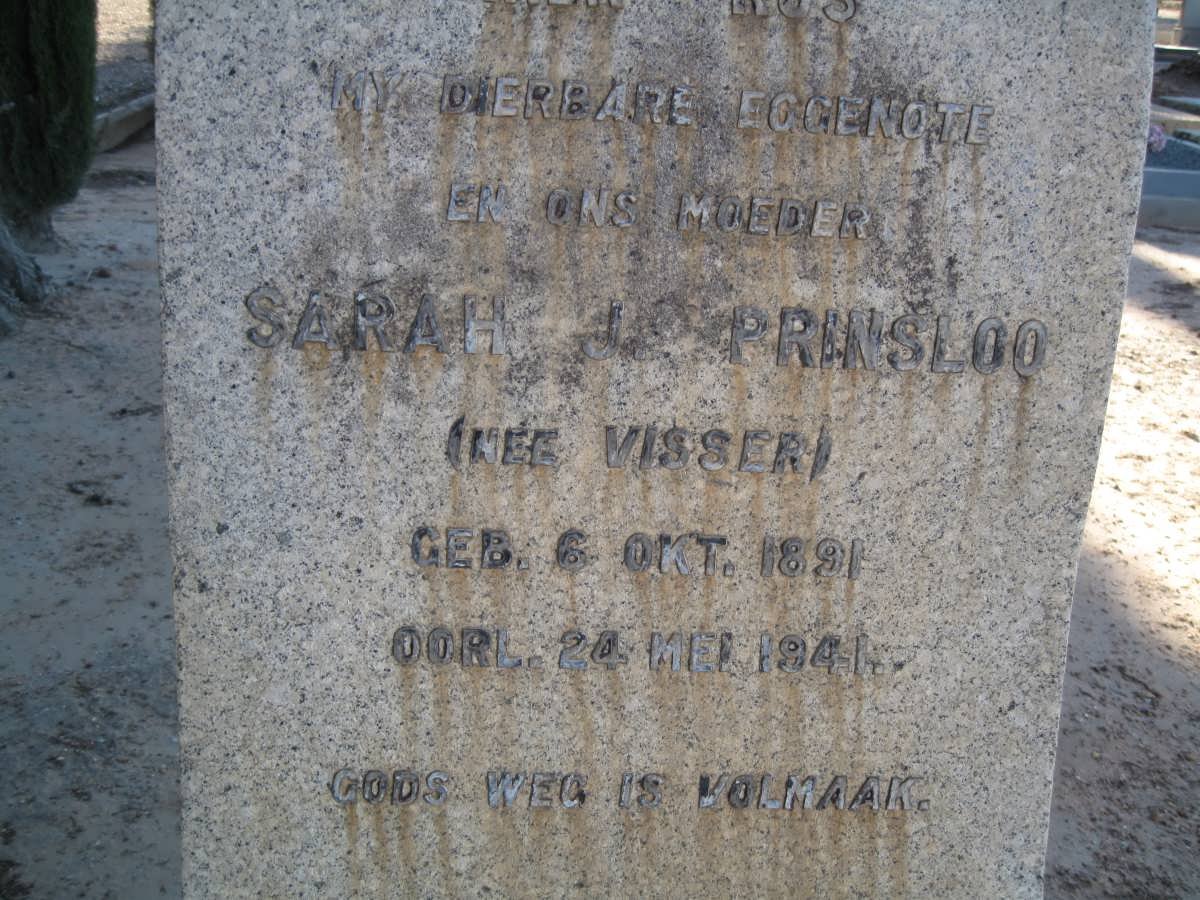 HIER RUS
MY DIERBARE EGGENOTE
EN ONS MOEDER
SARAH J. PRINSLOO
(NÉE VISSER)
GEB. 6 OKT. 1891
OORL. 24 MEI 1941.
GODS WEG IS VOLMAAK.